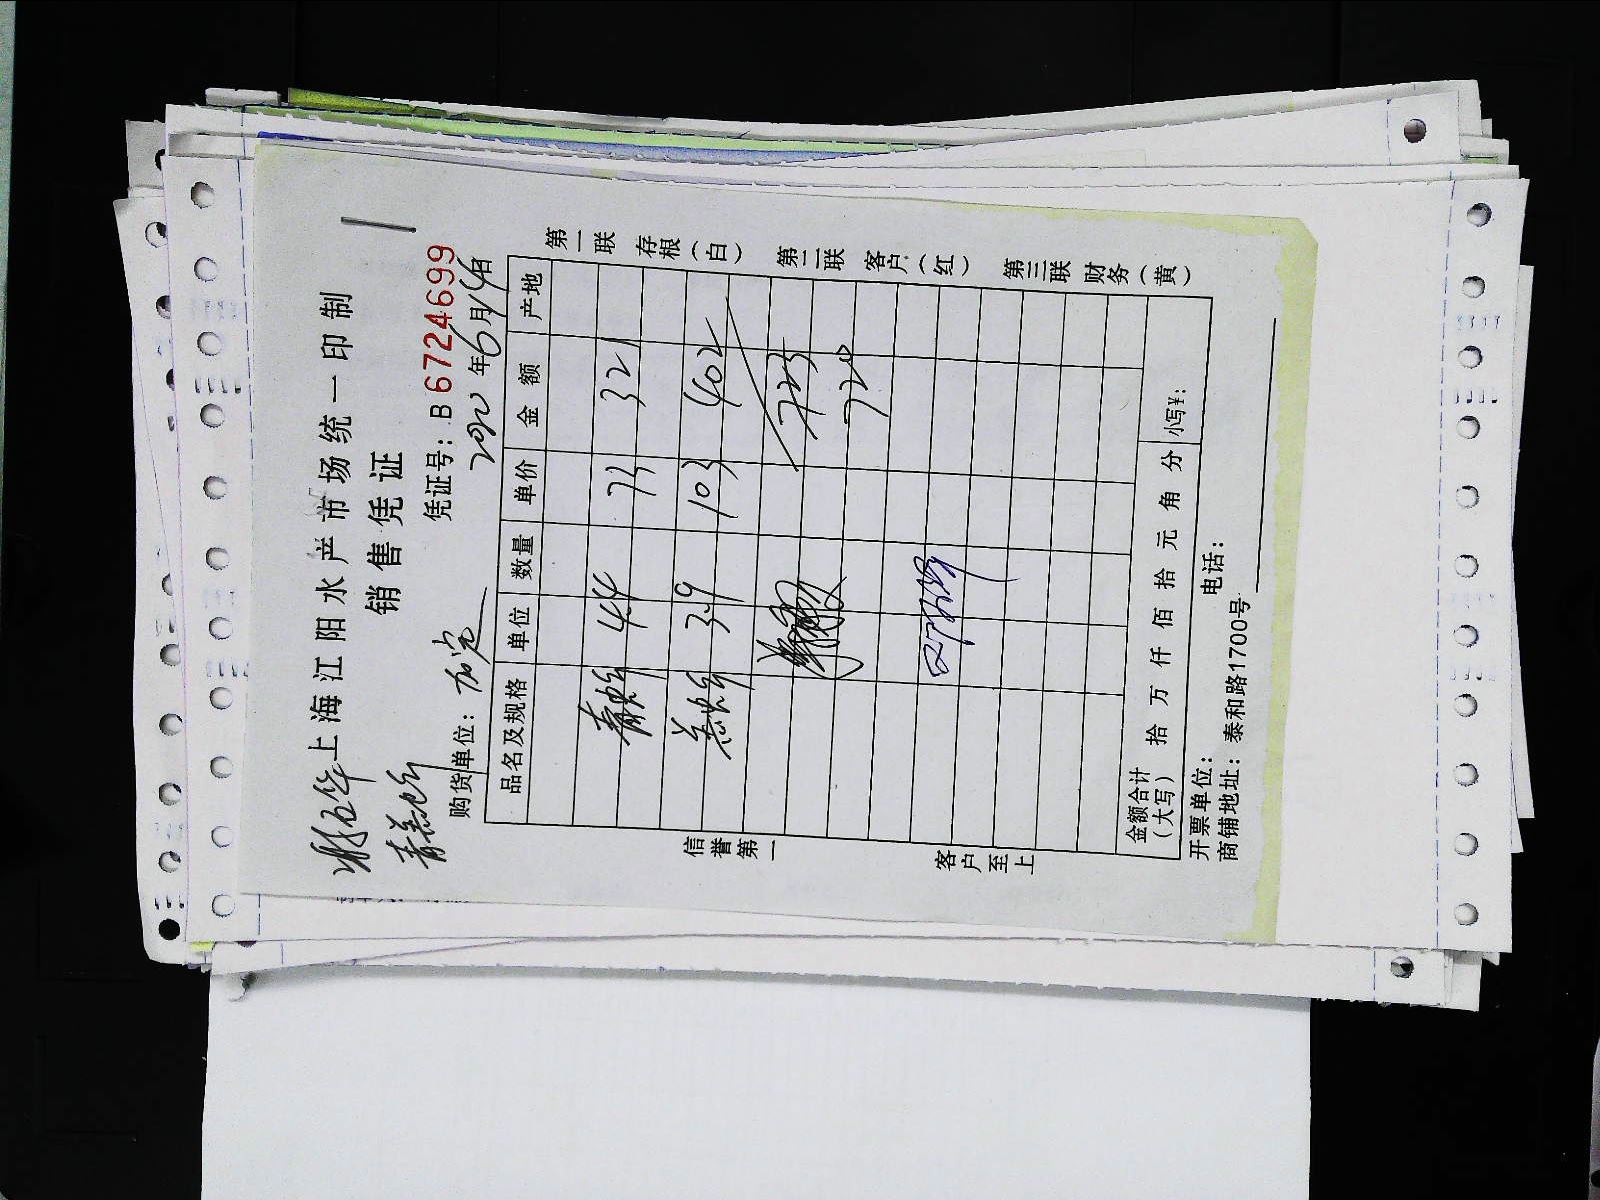 上海江阳水产市场统一印制
销售凭证
凭证号：B 6724699
2020年6月14日
购货单位：
品名及规格 单位 数量 单价 金额 产地
青蟹 4.4 73 321
羔蟹 3.9 103 402
723
720
金额合计（大写） 拾 万 仟 佰 拾 元 角 分 小写¥：
开票单位： 电话：
商铺地址：泰和路1700号
第一联 存根（白） 第二联 客户（红） 第三联 财务（黄）
信誉第一 客户至上